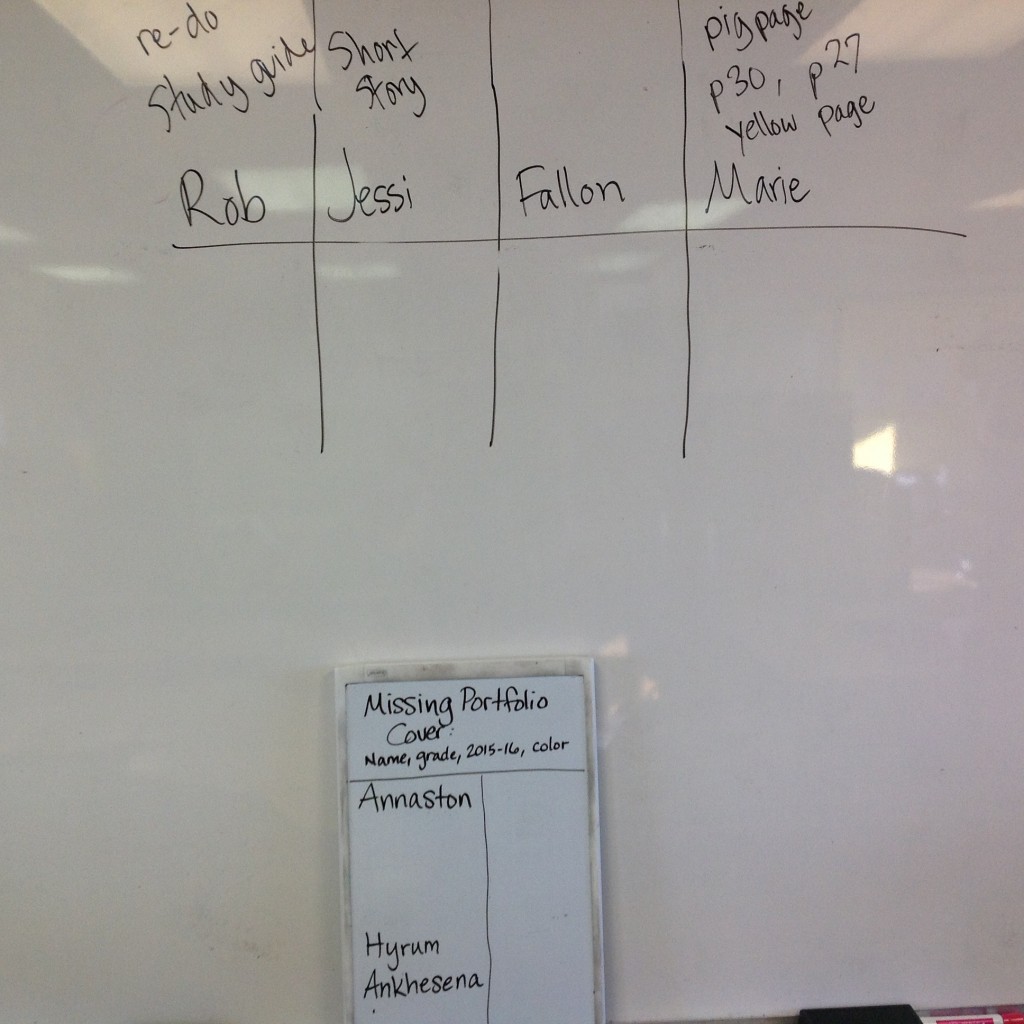 re-do
study guide
Short
story
pig page
p30, p27
yellow page
Rob
Jessi
Fallon
Marie
Missing Portfolio
Cover:
Name, grade, 2015-16, color
Annaston
Hyrum
Ankhesena